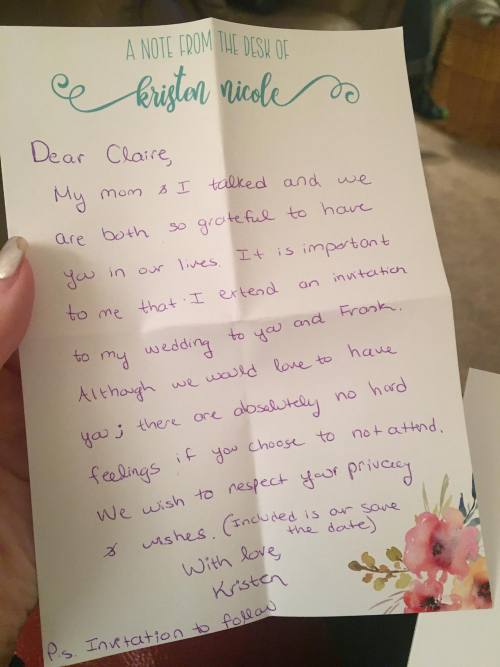 A NOTE FROM THE DESK OF
kristen nicole
Dear Claire,
My mom & I talked and we
are both so grateful to have
you in our lives. It is important
to me that I extend an invitation
to my wedding to you and Frank.
Although we would love to have
you; there are absolutely no hard
feelings if you choose to not attend.
We wish to respect your privacy
& wishes. (Included is our save
the date)
With love,
Kristen
P.s. Invitation to follow